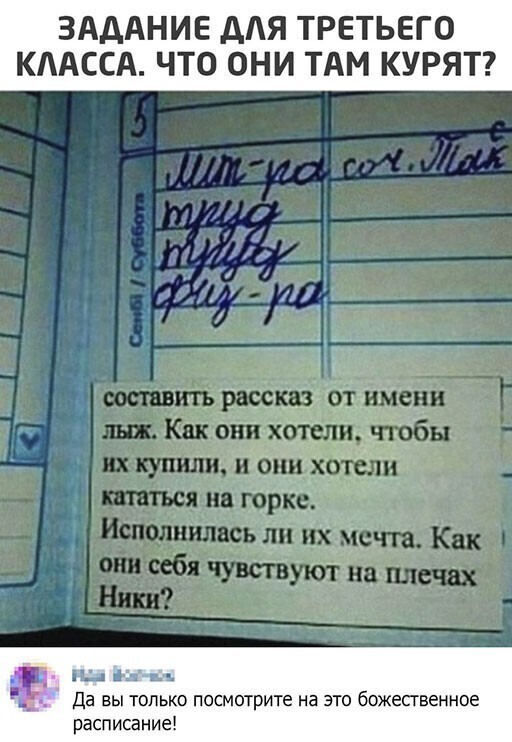 ЗАДАНИЕ ДЛЯ ТРЕТЬЕГО
КЛАССА. ЧТО ОНИ ТАМ КУРЯТ?
5
Сенбі / Суббота
лит-ра соч.
труд
труд
физ-ра
составить рассказ от имени
лыж. Как они хотели, чтобы
их купили, и они хотели
кататься на горке.
Исполнилась ли их мечта. Как
они себя чувствуют на плечах
Ники?
Да вы только посмотрите на это божественное
расписание!